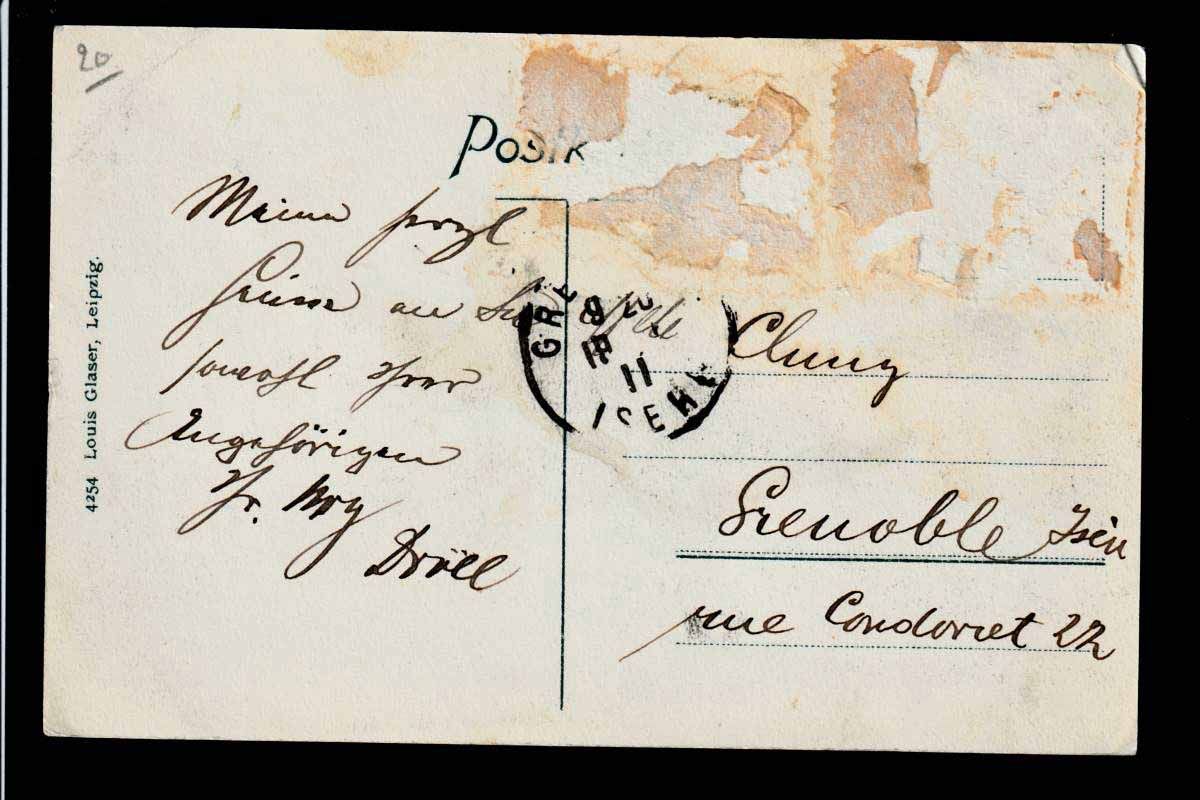 20
Postk
4254 Louis Glaser, Leipzig.
Meine herzl
Grüsse an Sie
sowohl Ihrer
Angehörigen
Ihr
Dröll
GRE
9
11
ISERE
Cluny
Grenoble Isère
rue Condorcet 22